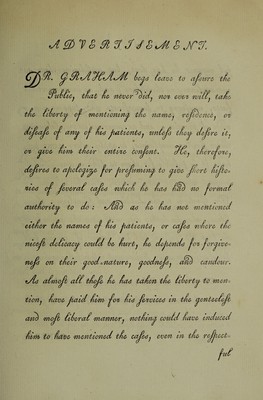 ADVERTISEMENT.
DR. GRAHAM begs leave to aſsure the
Public, that he never did, nor ever will, take
the liberty of mentioning the name, reſidence, or
diſeaſe of any of his patients, unleſs they deſire it,
or give him their entire conſent. He, therefore,
deſires to apologize for preſuming to give ſhort hiſto-
ries of ſeveral caſes which he has had no formal
authority to do: And as he has not mentioned
either the names of his patients, or caſes where the
niceſt delicacy could be hurt, he depends for forgive-
neſs on their good-nature, goodneſs, and candour.
As almoſt all theſe he has taken the liberty to men-
tion, have paid him for his ſervices in the genteeleſt
and moſt liberal manner, nothing could have induced
him to have mentioned the caſes, even in the reſpect-
ful